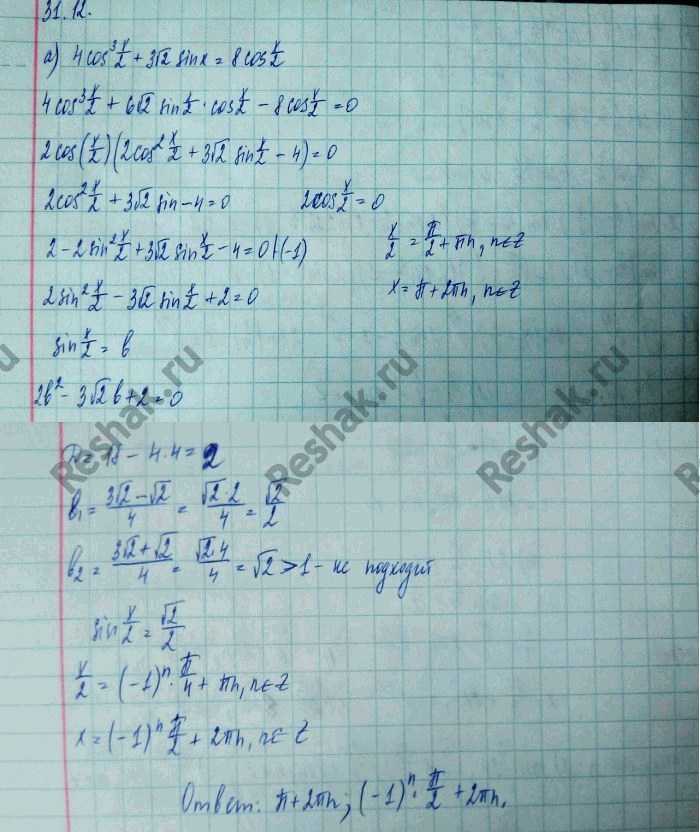 31.12.
а) 4cos³ x/2 + 3√2 sinx = 8cos x/2
4cos³ x/2 + 6√2 sin x/2 · cos x/2 − 8cos x/2 = 0
2cos(x/2)(2cos² x/2 + 3√2 sin x/2 − 4) = 0
2cos² x/2 + 3√2 sin − 4 = 0 2cos x/2 = 0
2 − 2sin² x/2 + 3√2 sin x/2 − 4 = 0 |·(−1) x/2 = π/2 + πn, n∈Z
2sin² x/2 − 3√2 sin x/2 + 2 = 0 x = π + 2πn, n∈Z
sin x/2 = b
2b² − 3√2 b + 2 = 0
D = 18 − 4·4 = 2
b₁ = (3√2 − √2)/4 = (√2·2)/4 = √2/2
b₂ = (3√2 + √2)/4 = (√2·4)/4 = √2 > 1 − не подходит
sin x/2 = √2/2
x/2 = (−1)ⁿ · π/4 + πn, n∈Z
x = (−1)ⁿ π/2 + 2πn, n∈Z
Ответ: π + 2πn; (−1)ⁿ · π/2 + 2πn.
Reshak.ru
Reshak.ru
Reshak.ru